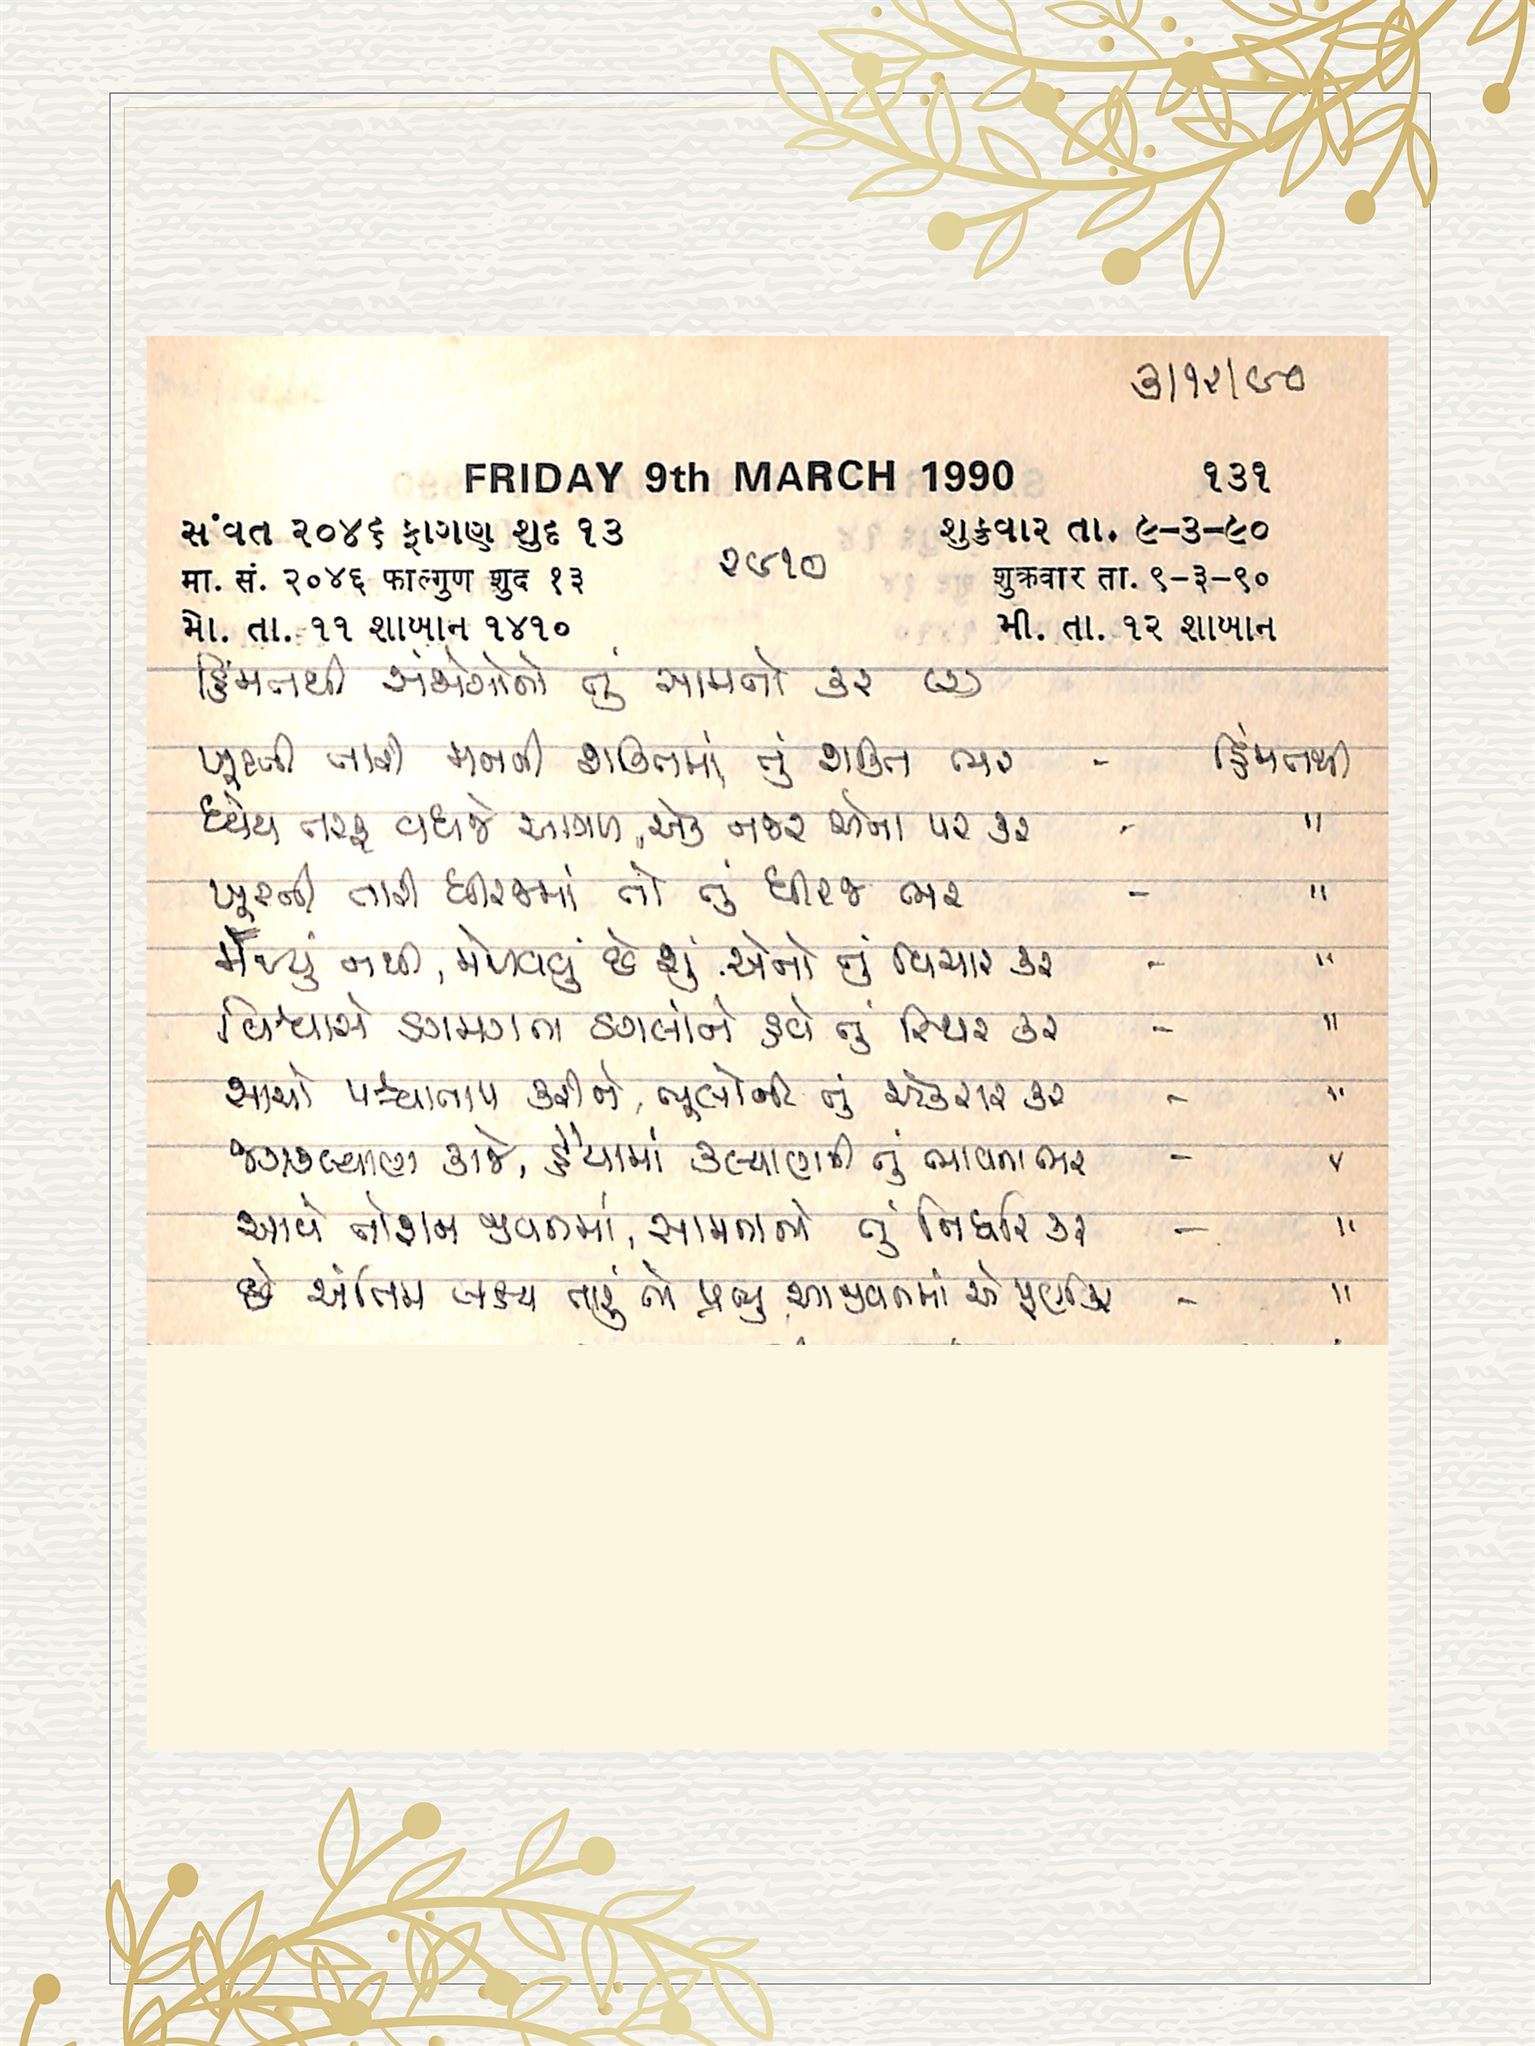 ૩/૧૨/૯૦
FRIDAY 9th MARCH 1990 ૧૩૧
સંવત ૨૦૪૬ ફાગણ શુદ ૧૩ શુક્રવાર તા. ૯-૩-૯૦
૨૯૧૦
मा. सं. २०४६ फाल्गुण शुद १३ शुक्रवार ता. ९-३-९०
મૌ. તા. ૧૧ શાબાન ૧૪૧૦ મી. તા. ૧૨ શાબાન
હિંમતથી સંજોગોનો તું સામનો કર (૨)
ખૂટતી તારી મનની શક્તિમાં, તું શક્તિ ભર - હિંમતથી
ધ્યેય તરફ વધજે આગળ, એક નજર એના પર કર - "
ખૂટતી તારી ધીરજમાં તો તું ધીરજ ભર - "
મેળવ્યું નથી, મેળવવું છે શું એનો તું વિચાર કર - "
વિશ્વાસે ડગમગતા ડગલાંને હવે તું સ્થિર કર - "
સાચો પશ્ચાતાપ કરીને, ભૂલોની તું એકરાર કર - "
જગકલ્યાણ કાજે, હૈયામાં કલ્યાણની તું ભાવના ભર - "
આવે તોફાન જીવનમાં, સામનાનો તું નિર્ધાર કર - "
છે અંતિમ લક્ષ્ય તારું તો પ્રભુ, આ જીવનમાં એ પૂર્ણ કર - "